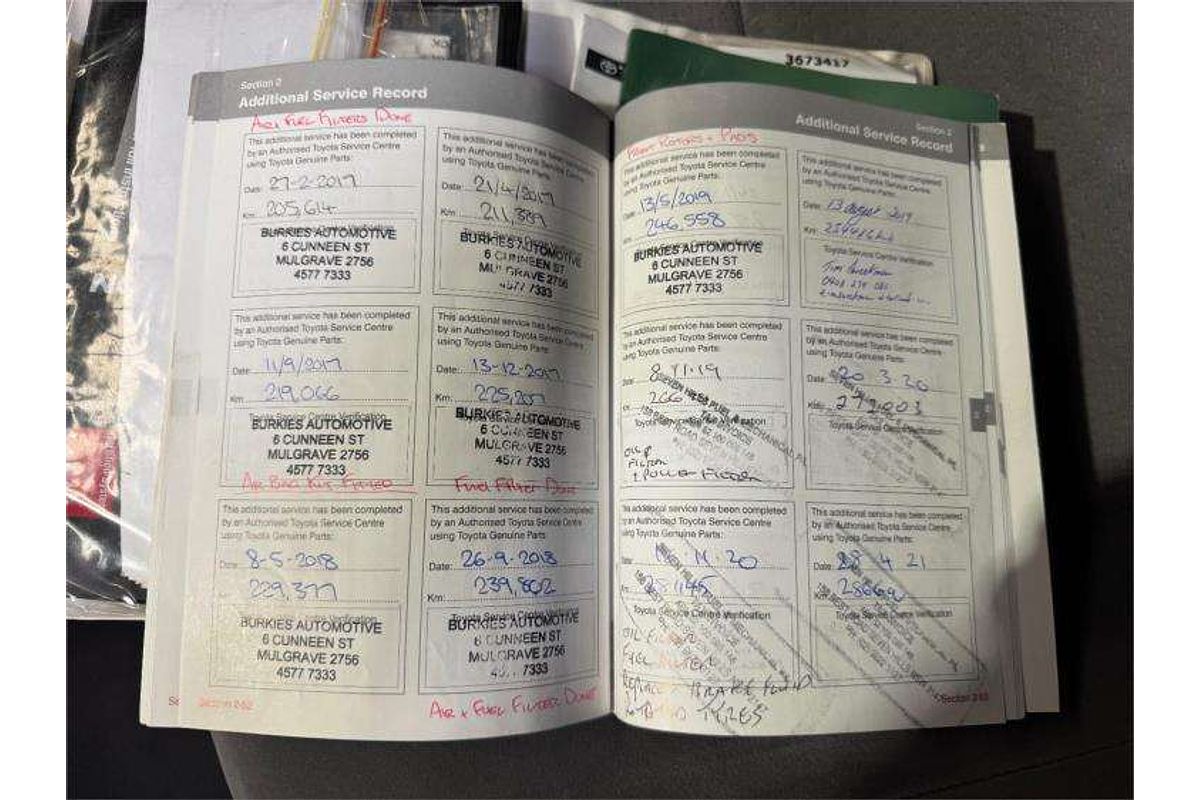 3673417
Section 2
Additional Service Record
AIR + FUEL FILTERS DONE
This additional service has been completed
by an Authorised Toyota Service Centre
using Toyota Genuine Parts:
Date: 27-2-2017
Km: 205,614
BURKIES AUTOMOTIVE
6 CUNNEEN ST
MULGRAVE 2756
4577 7333
This additional service has been completed
by an Authorised Toyota Service Centre
using Toyota Genuine Parts:
Date: 21/4/2017
Km: 211,389
BURKIES AUTOMOTIVE
6 CUNNEEN ST
MULGRAVE 2756
4577 7333
This additional service has been completed
by an Authorised Toyota Service Centre
using Toyota Genuine Parts:
Date: 11/9/2017
Km: 219,066
Toyota Service Centre Verification
BURKIES AUTOMOTIVE
6 CUNNEEN ST
MULGRAVE 2756
4577 7333
AIR BAG KIT FITTED
This additional service has been completed
by an Authorised Toyota Service Centre
using Toyota Genuine Parts:
Date: 13-12-2017
Km: 225,207
BURKIES AUTOMOTIVE
6 CUNNEEN ST
MULGRAVE 2756
4577 7333
FUEL FILTER DONE
This additional service has been completed
by an Authorised Toyota Service Centre
using Toyota Genuine Parts:
Date: 8-5-2018
229,377
BURKIES AUTOMOTIVE
6 CUNNEEN ST
MULGRAVE 2756
4577 7333
This additional service has been completed
by an Authorised Toyota Service Centre
using Toyota Genuine Parts:
Date: 26-9-2018
Km: 239,802
Toyota Service Centre Verification
BURKIES AUTOMOTIVE
6 CUNNEEN ST
MULGRAVE 2756
7333
AIR + FUEL FILTER DONE
Section 2-52
Section 2
Additional Service Record
FRONT ROTORS + PADS
This additional service has been completed
by an Authorised Toyota Service Centre
using Toyota Genuine Parts:
Date: 13/5/2019
Km: 246,558
BURKIES AUTOMOTIVE
6 CUNNEEN ST
MULGRAVE 2756
4577 7333
This additional service has been completed
by an Authorised Toyota Service Centre
using Toyota Genuine Parts:
Date: 13 august 2019
Km:
Toyota Service Centre Verification
Tim
This additional service has been completed
by an Authorised Toyota Service Centre
using Toyota Genuine Parts:
Date: 8.11.19
266
Toyota Service Centre Verification
SEVEN HILLS FUEL & MECHANICAL P/L
TAX INVOICE
OIL
FILTER
POLLEN FILTER
This additional service has been completed
by an Authorised Toyota Service Centre
using Toyota Genuine Parts:
Date: 20 3.20
Km: 272,003
Toyota Service Centre Verification
This additional service has been completed
by an Authorised Toyota Service Centre
using Toyota Genuine Parts:
11.20
Toyota Service Centre Verification
OIL FILTER
FUEL FILTER
BRAKE FLUID
TYRES
This additional service has been completed
by an Authorised Toyota Service Centre
using Toyota Genuine Parts:
Date: 28 4 21
Toyota Service Centre Verification
Section 2-53